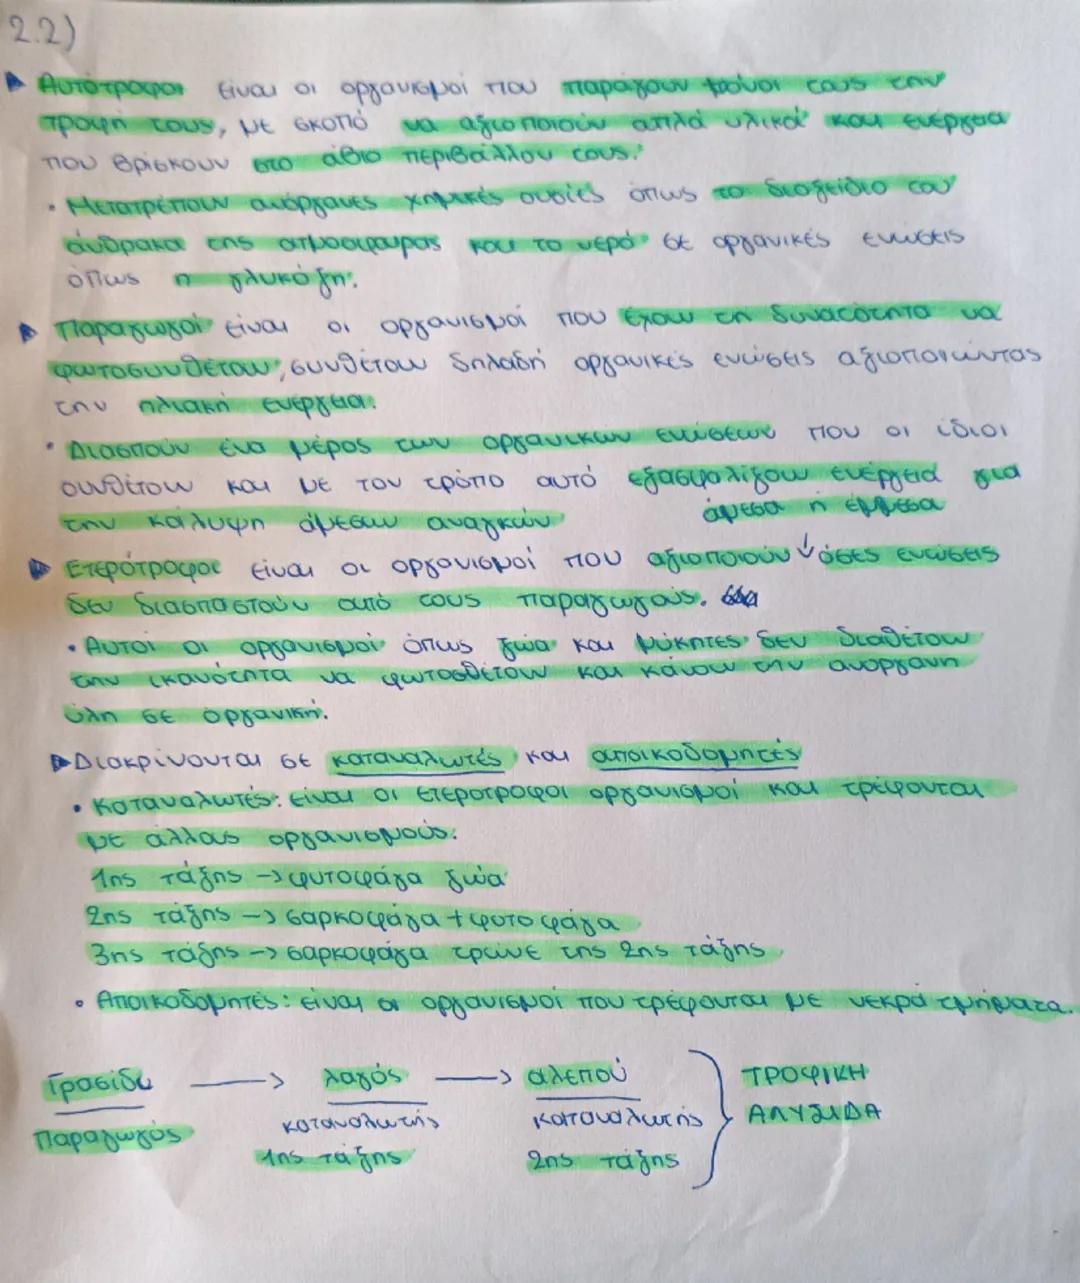 2.2)
Αυτότροφοι είναι οι οργανισμοί που παράγουν μόνοι τους την
τροφή τους, με σκοπό να αξιοποιούν απλά υλικά και ενέργεια
που βρίσκουν στο άβιο περιβάλλον τους.
• Μετατρέπουν ανόργανες χημικές ουσίες όπως το διοξείδιο του
άνθρακα της ατμόσφαιρας και το νερό σε οργανικές ενώσεις
όπως η γλυκόζη.
Παραγωγοί είναι οι οργανισμοί που έχουν τη δυνατότητα να
φωτοσυνθέτουν, συνθέτουν δηλαδή οργανικές ενώσεις αξιοποιώντας
την ηλιακή ενέργεια.
• Διασπούν ένα μέρος των οργανικών ενώσεων που οι ίδιοι
συνθέτουν και με τον τρόπο αυτό εξασφαλίζουν ενέργεια για
την κάλυψη άμεσων αναγκών
άμεσα ή έμμεσα
Ετερότροφοι είναι οι οργανισμοί που αξιοποιούν ↓ όσες ενώσεις
δεν διασπαστούν από τους παραγωγούς.
• Αυτοί οι οργανισμοί όπως ζώα και μύκητες δεν διαθέτουν
την ικανότητα να φωτοσθέτουν και κάνουν την ανόργανη
ύλη σε οργανική.
Διακρίνονται σε καταναλωτές και αποικοδομητές
• Καταναλωτές: είναι οι ετερότροφοι οργανισμοί και τρέφονται
με άλλους οργανισμούς.
1ης τάξης -> φυτοφάγα ζώα
2ης τάξης -> σαρκοφάγα + φυτοφάγα
3ης τάξης -> σαρκοφάγα τρώνε της 2ης τάξης
• Αποικοδομητές: είναι οι οργανισμοί που τρέφονται με νεκρά τμήματα.
Γρασίδι -> λαγός -> αλεπού ΤΡΟΦΙΚΗ
παραγωγός καταναλωτής καταναλωτής ΑΛΥΣΙΔΑ
1ης τάξης 2ης τάξης